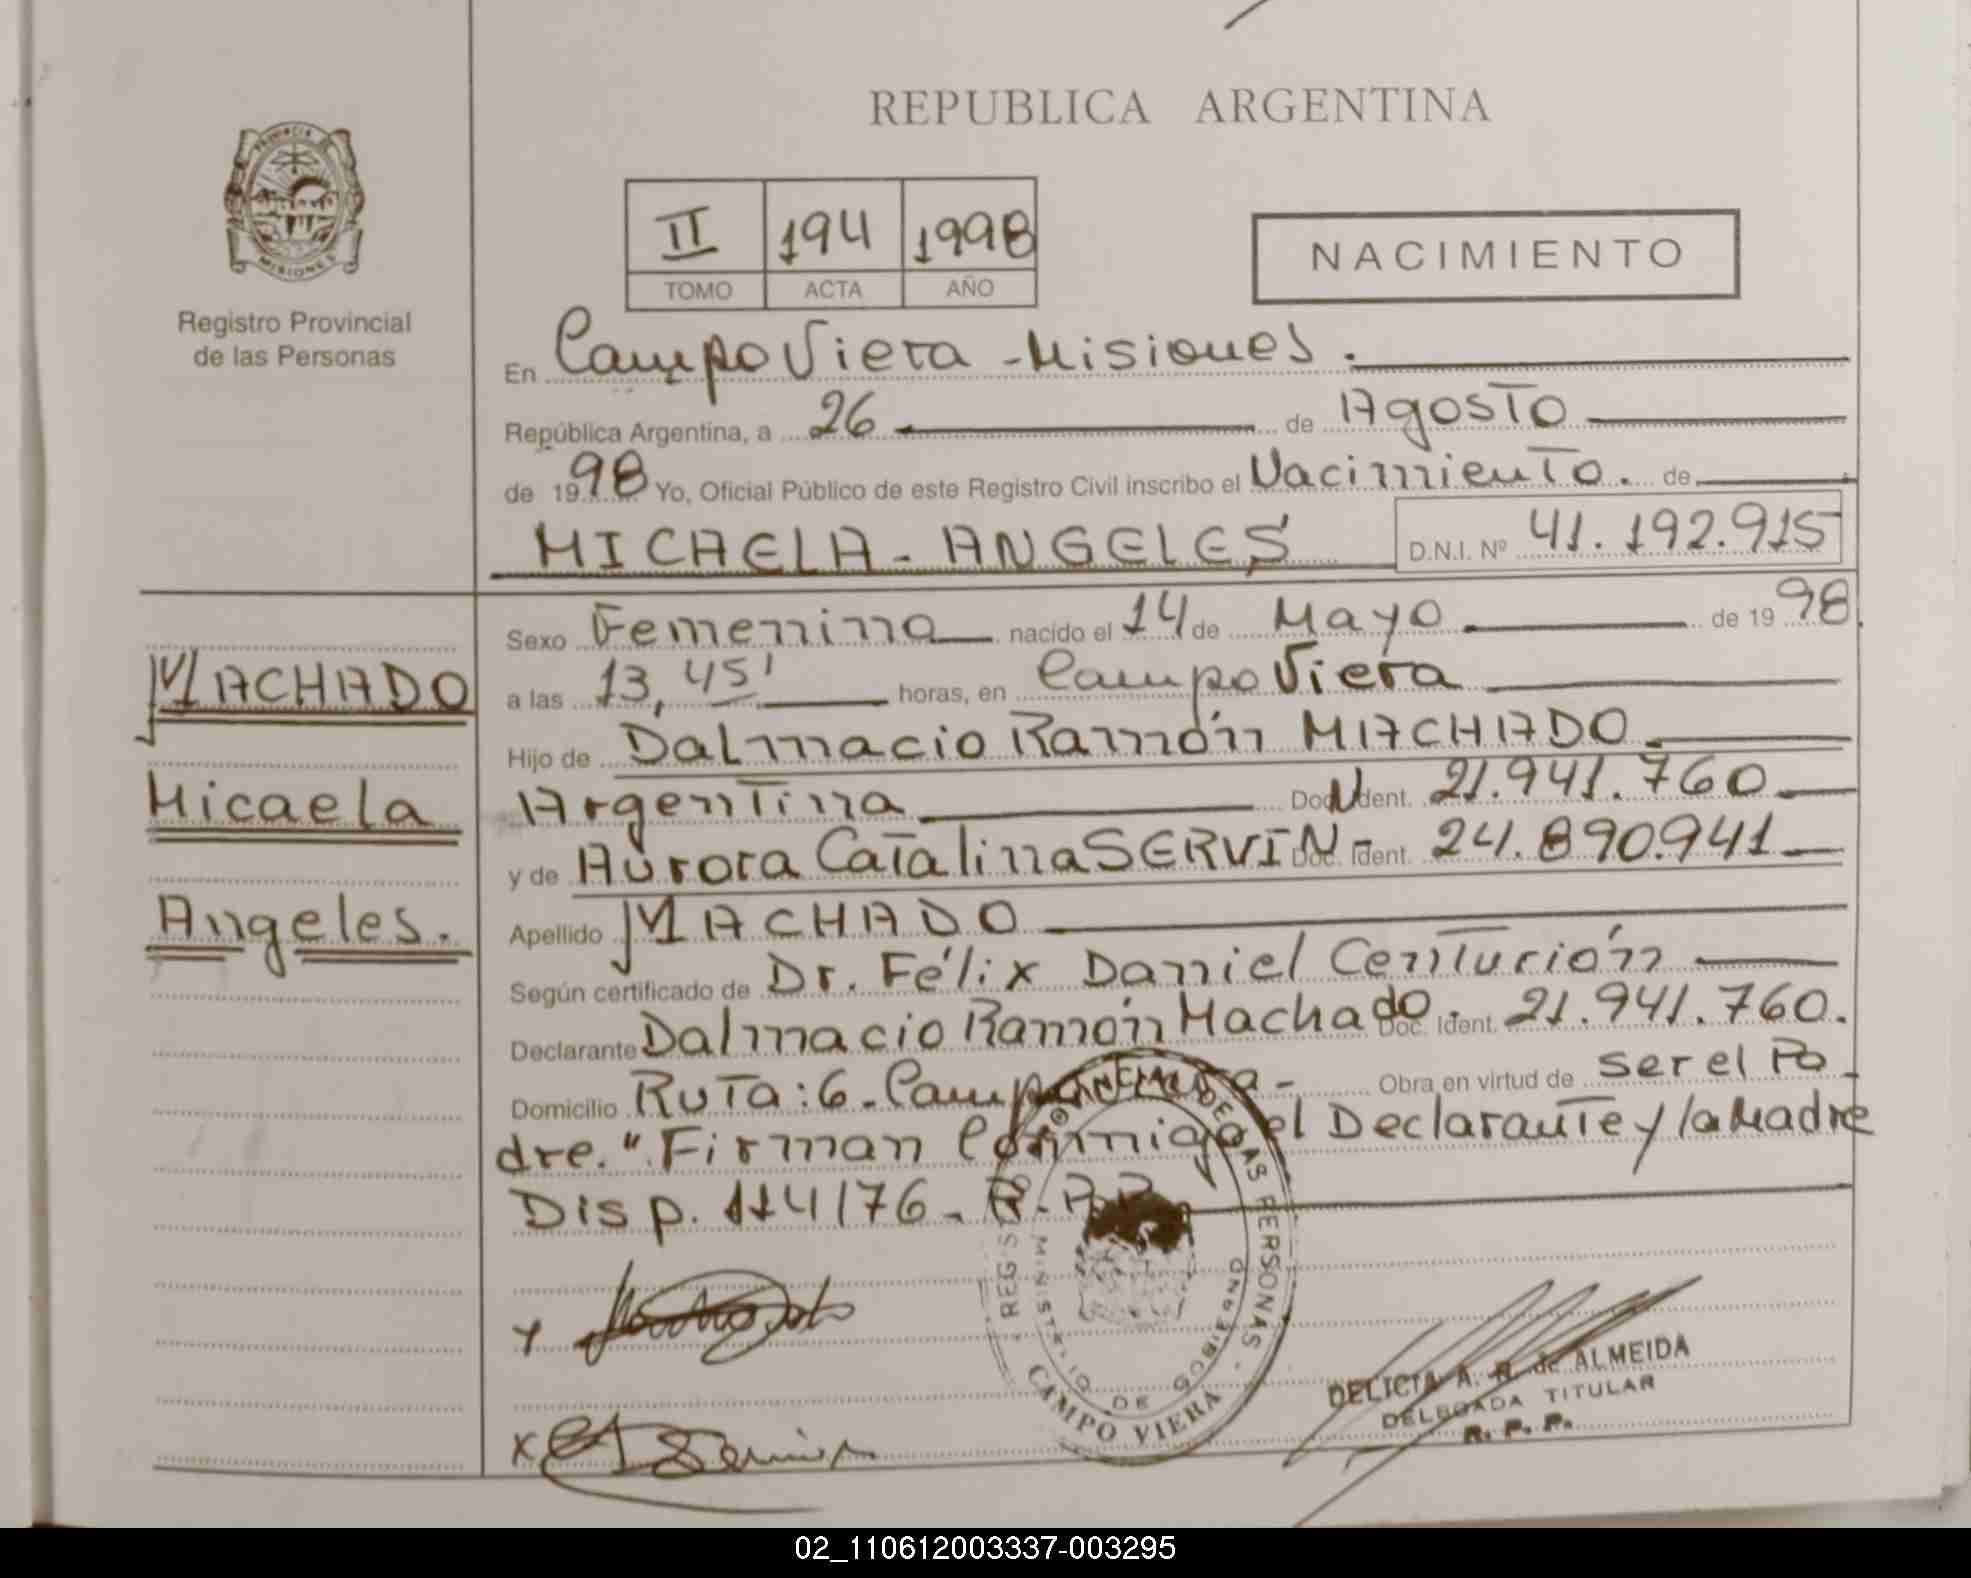 REPUBLICA ARGENTINA
PROVINCIA DE
MISIONES
Registro Provincial
de las Personas
II 194 1998
TOMO ACTA AÑO
NACIMIENTO
En Campo Viera - Misiones.
República Argentina, a 26 de Agosto
de 1998 Yo, Oficial Público de este Registro Civil inscribo el Nacimiento. de
MICAELA - ANGELES D.N.I. Nº 41.192.915
MACHADO
Micaela
Angeles.
Sexo Femenino nacido el 14 de Mayo de 1998.
a las 13,45' horas, en Campo Viera
Hijo de Dalmacio Ramón MACHADO
Argentina Doc. Ident. 21.941.760
y de Aurora Catalina SERVIN - Doc. Ident. 24.890.941
Apellido MACHADO
Según certificado de Dr. Félix Daniel Centurión
Declarante Dalmacio Ramón Machado. Doc. Ident. 21.941.760.
Domicilio Ruta: 6 - Campo Viera - Obra en virtud de ser el Pa
dre. " Firman Conmigo el Declarante y la Madre
Disp. 114/76 - R.P.P.
REGISTRO PROVINCIAL DE LAS PERSONAS -
MINISTERIO DE GOBIERNO
CAMPO VIERA
DELICIA A. R. de ALMEIDA
DELEGADA TITULAR
R. P. P.
02_110612003337-003295